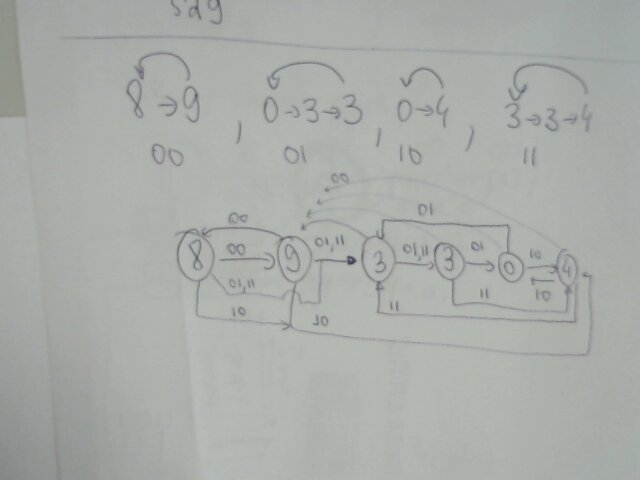 8→9, 0→3→3, 0→4, 3→3→4
00 01 10 11
00
00 01
8 00 9 01,11 3 01,11 3 01 0 10 4
01,11 10
10 10 11 11